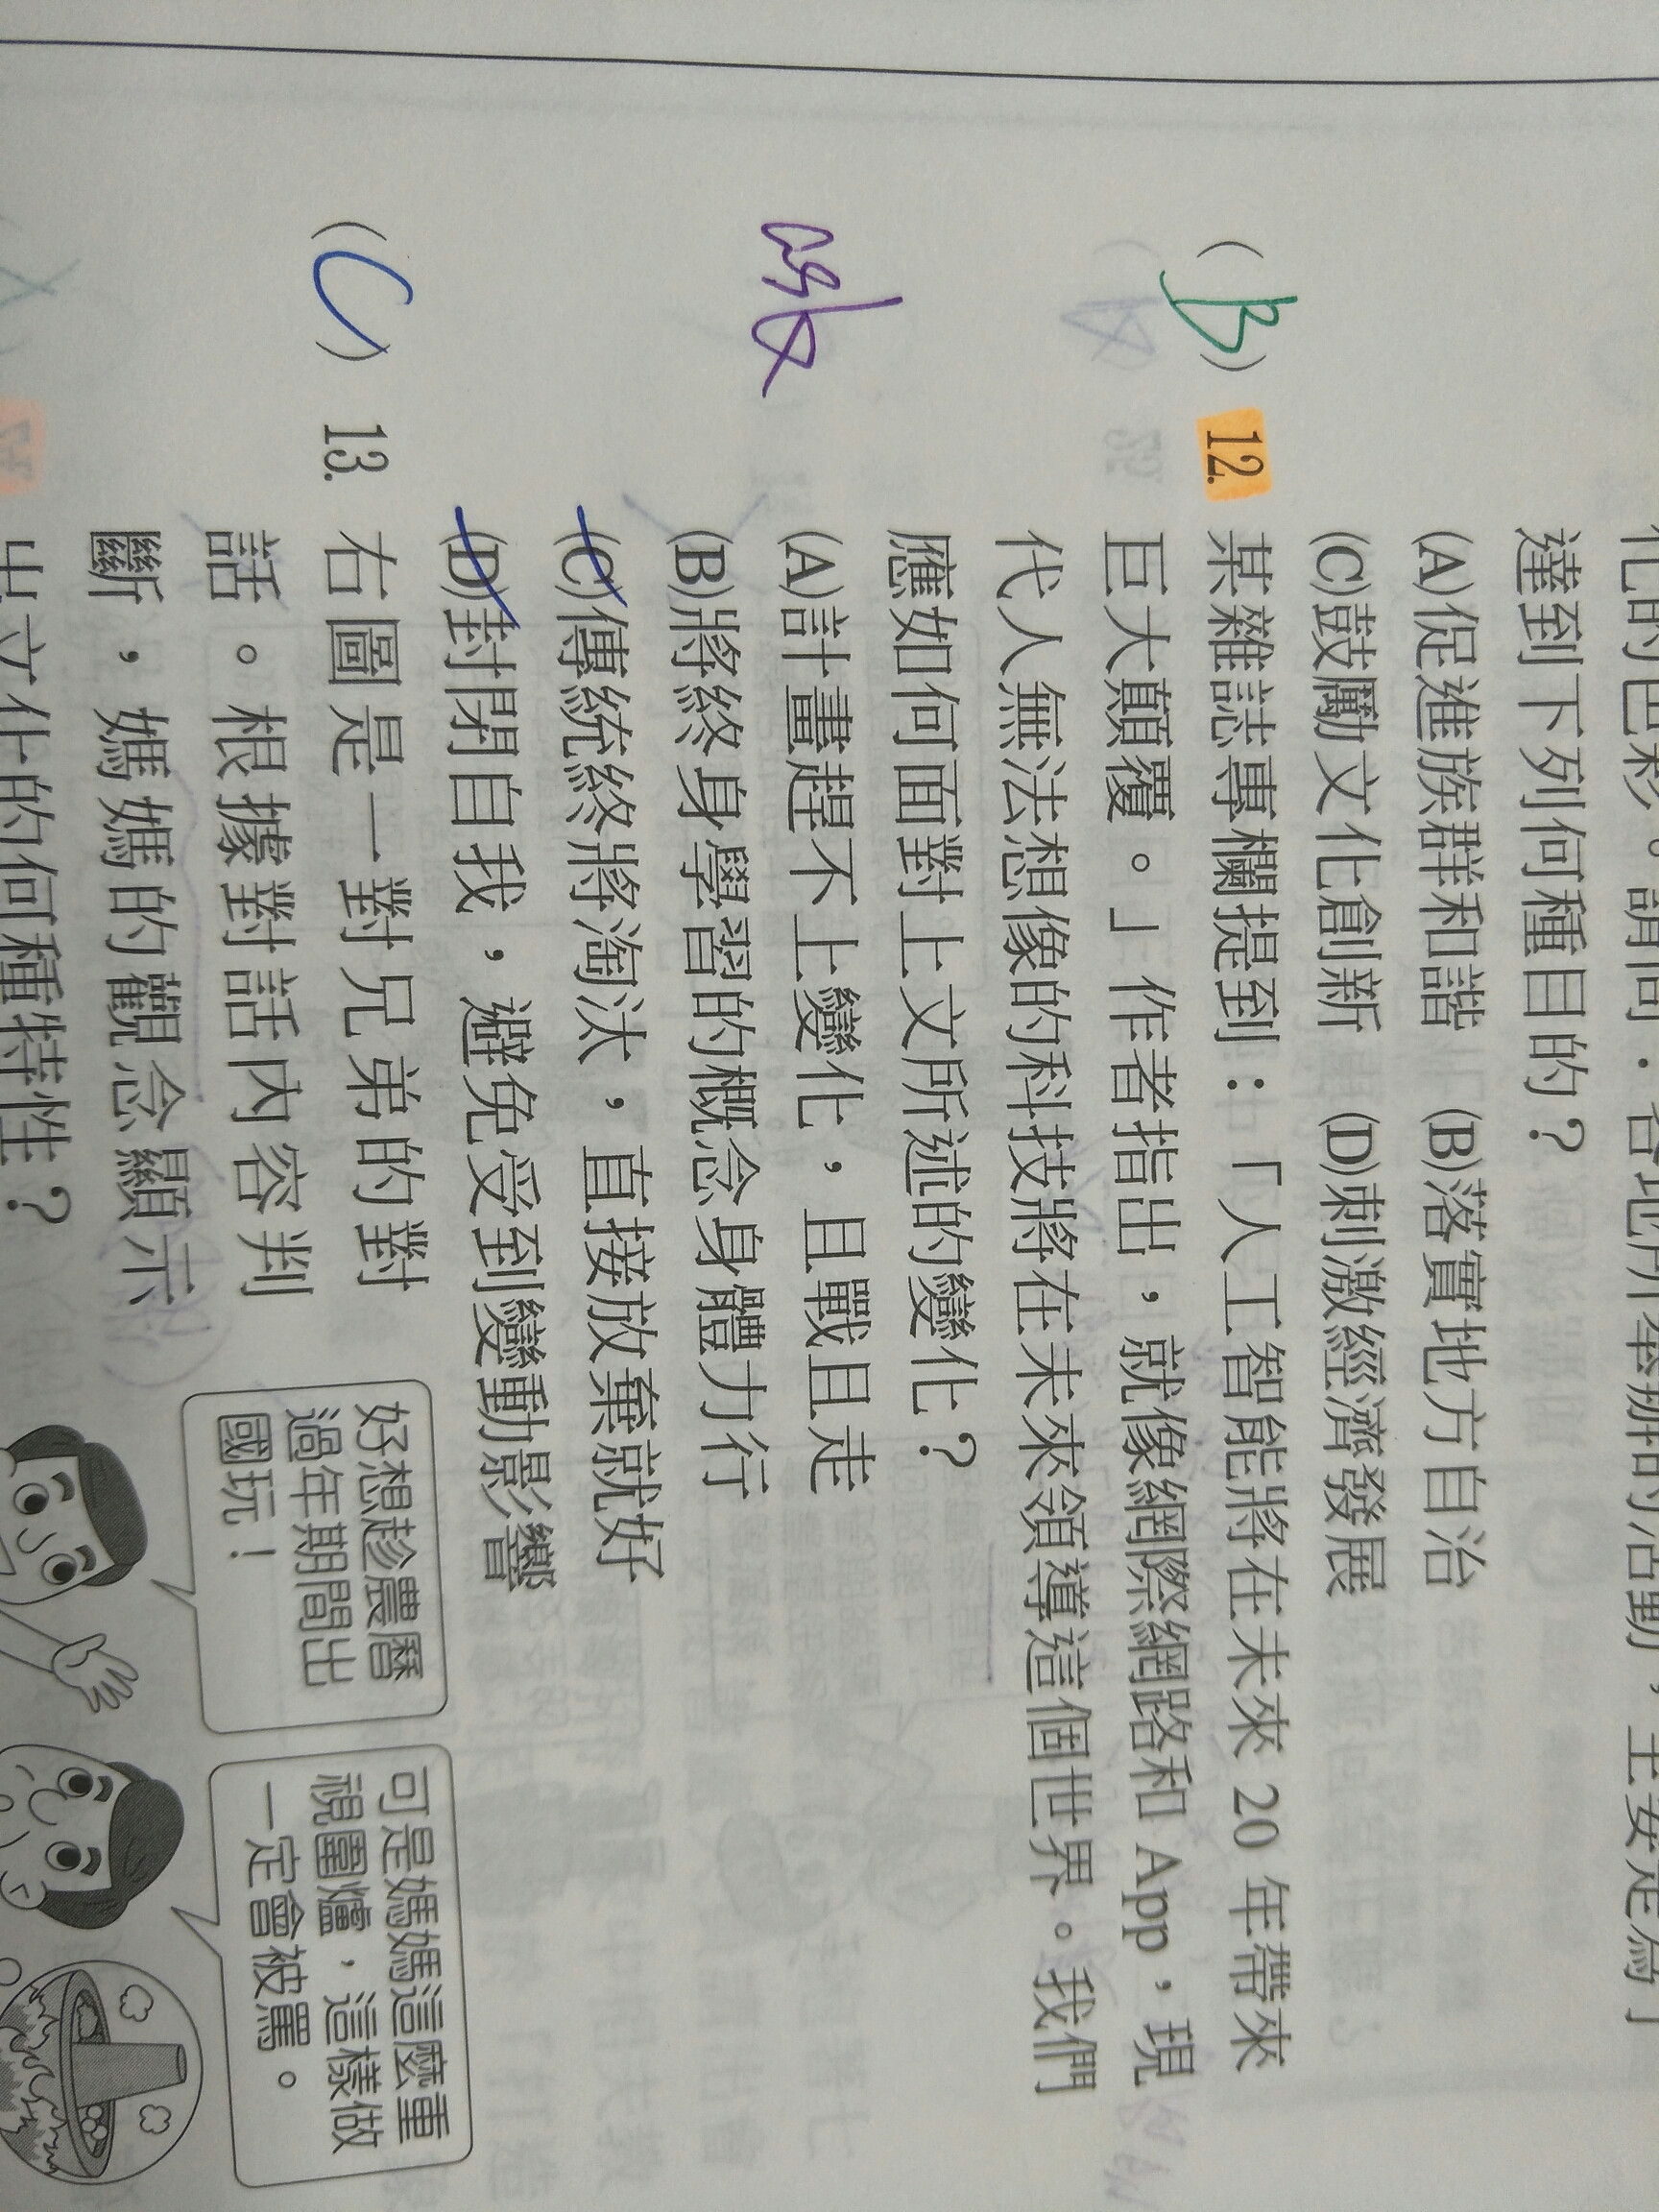 達到下列何種目的？
(A)促進族群和諧 (B)落實地方自治
(C)鼓勵文化創新 (D)刺激經濟發展
(B) 12. 某雜誌專欄提到：「人工智能將在未來 20 年帶來
巨大顛覆。」作者指出，就像網際網路和 App，現
代人無法想像的科技將在未來領導這個世界。我們
應如何面對上文所述的變化？
ask
(A)計畫趕不上變化，且戰且走
(B)將終身學習的概念身體力行
(C)傳統終將淘汰，直接放棄就好
(D)封閉自我，避免受到變動影響
(C) 13. 右圖是一對兄弟的對
話。根據對話內容判
斷，媽媽的觀念顯示
出文化的何種特性？
好想趁農曆
過年期間出
國玩！
可是媽媽這麼重
視圍爐，這樣做
一定會被罵。